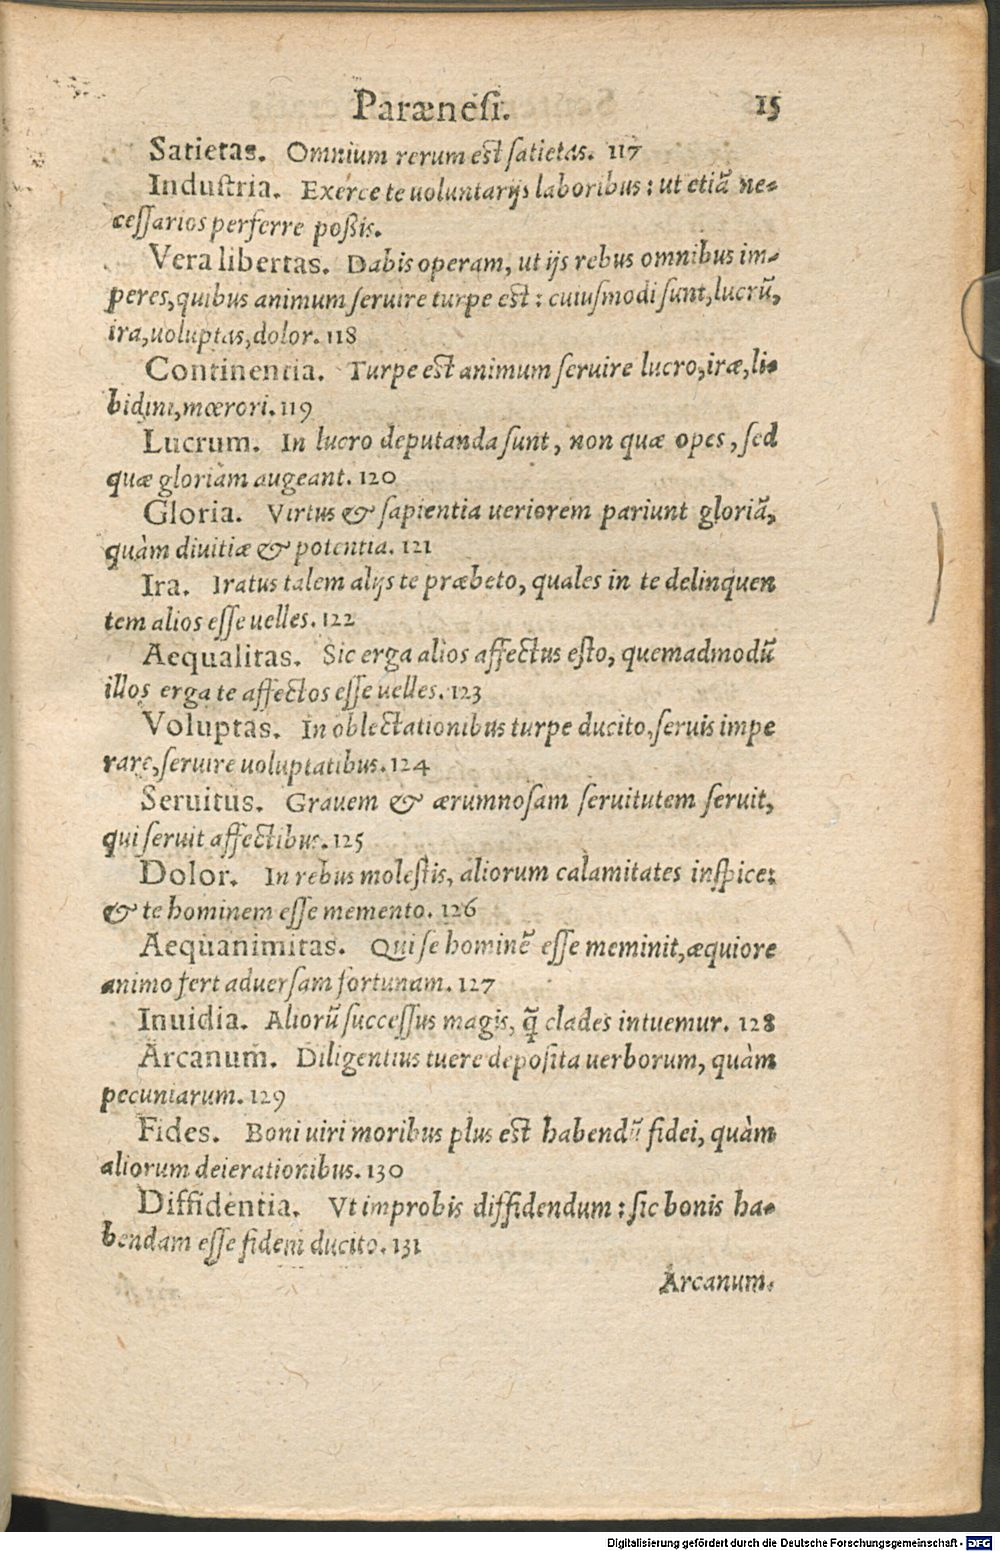 Parænesi. 15
Satietas. Omnium rerum est satietas. 117
Industria. Exerce te uoluntarijs laboribus: ut etiã ne-
cessarios perferre poßis.
Vera libertas. Dabis operam, ut ijs rebus omnibus im-
peres, quibus animum seruire turpe est: cuiusmodi sunt, lucrũ,
ira, uoluptas, dolor. 118
Continentia. Turpe est animum seruire lucro, iræ, li-
bidini, mœrori. 119
Lucrum. In lucro deputanda sunt, non quæ opes, sed
quæ gloriam augeant. 120
Gloria. Virtus & sapientia ueriorem pariunt gloriã,
quàm diuitiæ & potentia. 121
Ira. Iratus talem alijs te præbeto, quales in te delinquen
tem alios esse uelles. 122
Aequalitas. Sic erga alios affectus esto, quemadmodũ
illos erga te affectos esse uelles. 123
Voluptas. In oblectationibus turpe ducito, seruis impe
rare, seruire uoluptatibus. 124
Seruitus. Grauem & ærumnosam seruitutem seruit,
qui seruit affectibus. 125
Dolor. In rebus molestis, aliorum calamitates inspice:
& te hominem esse memento. 126
Aequanimitas. Qui se hominẽ esse meminit, æquiore
animo fert aduersam fortunam. 127
Inuidia. Aliorũ successus magis, q̃ clades intuemur. 128
Arcanum. Diligentius tuere deposita uerborum, quàm
pecuniarum. 129
Fides. Boni uiri moribus plus est habendũ fidei, quàm
aliorum deierationibus. 130
Diffidentia. Vt improbis diffidendum: sic bonis ha-
bendam esse fidem ducito. 131
Arcanum.
Digitalisierung gefördert durch die Deutsche Forschungsgemeinschaft - DFG